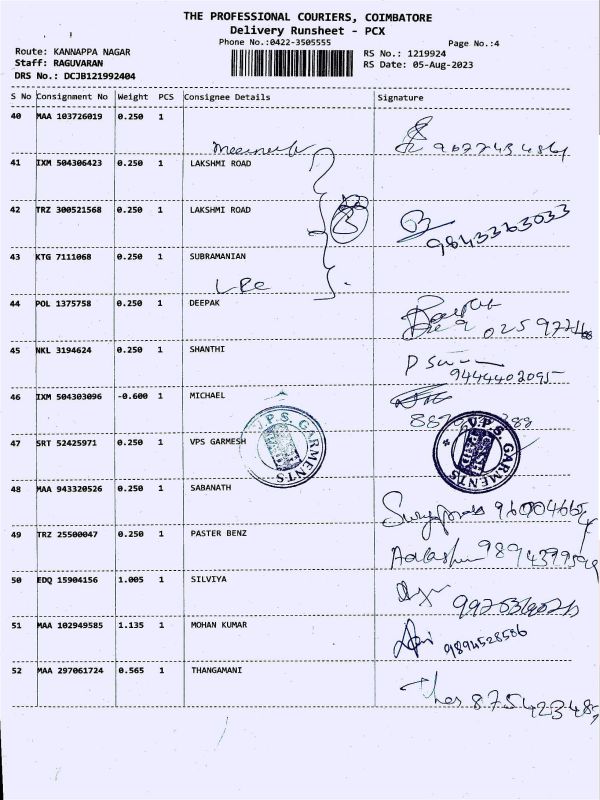 THE PROFESSIONAL COURIERS, COIMBATORE
Delivery Runsheet - PCX
Phone No.:0422-3505555
Page No.:4
Route: KANNAPPA NAGAR
Staff: RAGUVARAN
DRS No.: DCJB121992404
RS No.: 1219924
RS Date: 05-Aug-2023
S No Consignment No Weight PCS Consignee Details Signature
40 MAA 103726019 0.250 1
41 IXM 504306423 0.250 1 LAKSHMI ROAD
42 TRZ 300521568 0.250 1 LAKSHMI ROAD
9843363033
43 KTG 7111068 0.250 1 SUBRAMANIAN
44 POL 1375758 0.250 1 DEEPAK
45 NKL 3194624 0.250 1 SHANTHI
9444402095
46 IXM 504303096 -0.600 1 MICHAEL
47 SRT 52425971 0.250 1 VPS GARMESH
V.P.S. GARMENTS
V.P.S. GARMENTS
48 MAA 943320526 0.250 1 SABANATH
49 TRZ 25500047 0.250 1 PASTER BENZ
50 EDQ 15904156 1.005 1 SILVIYA
51 MAA 102949585 1.135 1 MOHAN KUMAR
9894528586
52 MAA 297061724 0.565 1 THANGAMANI